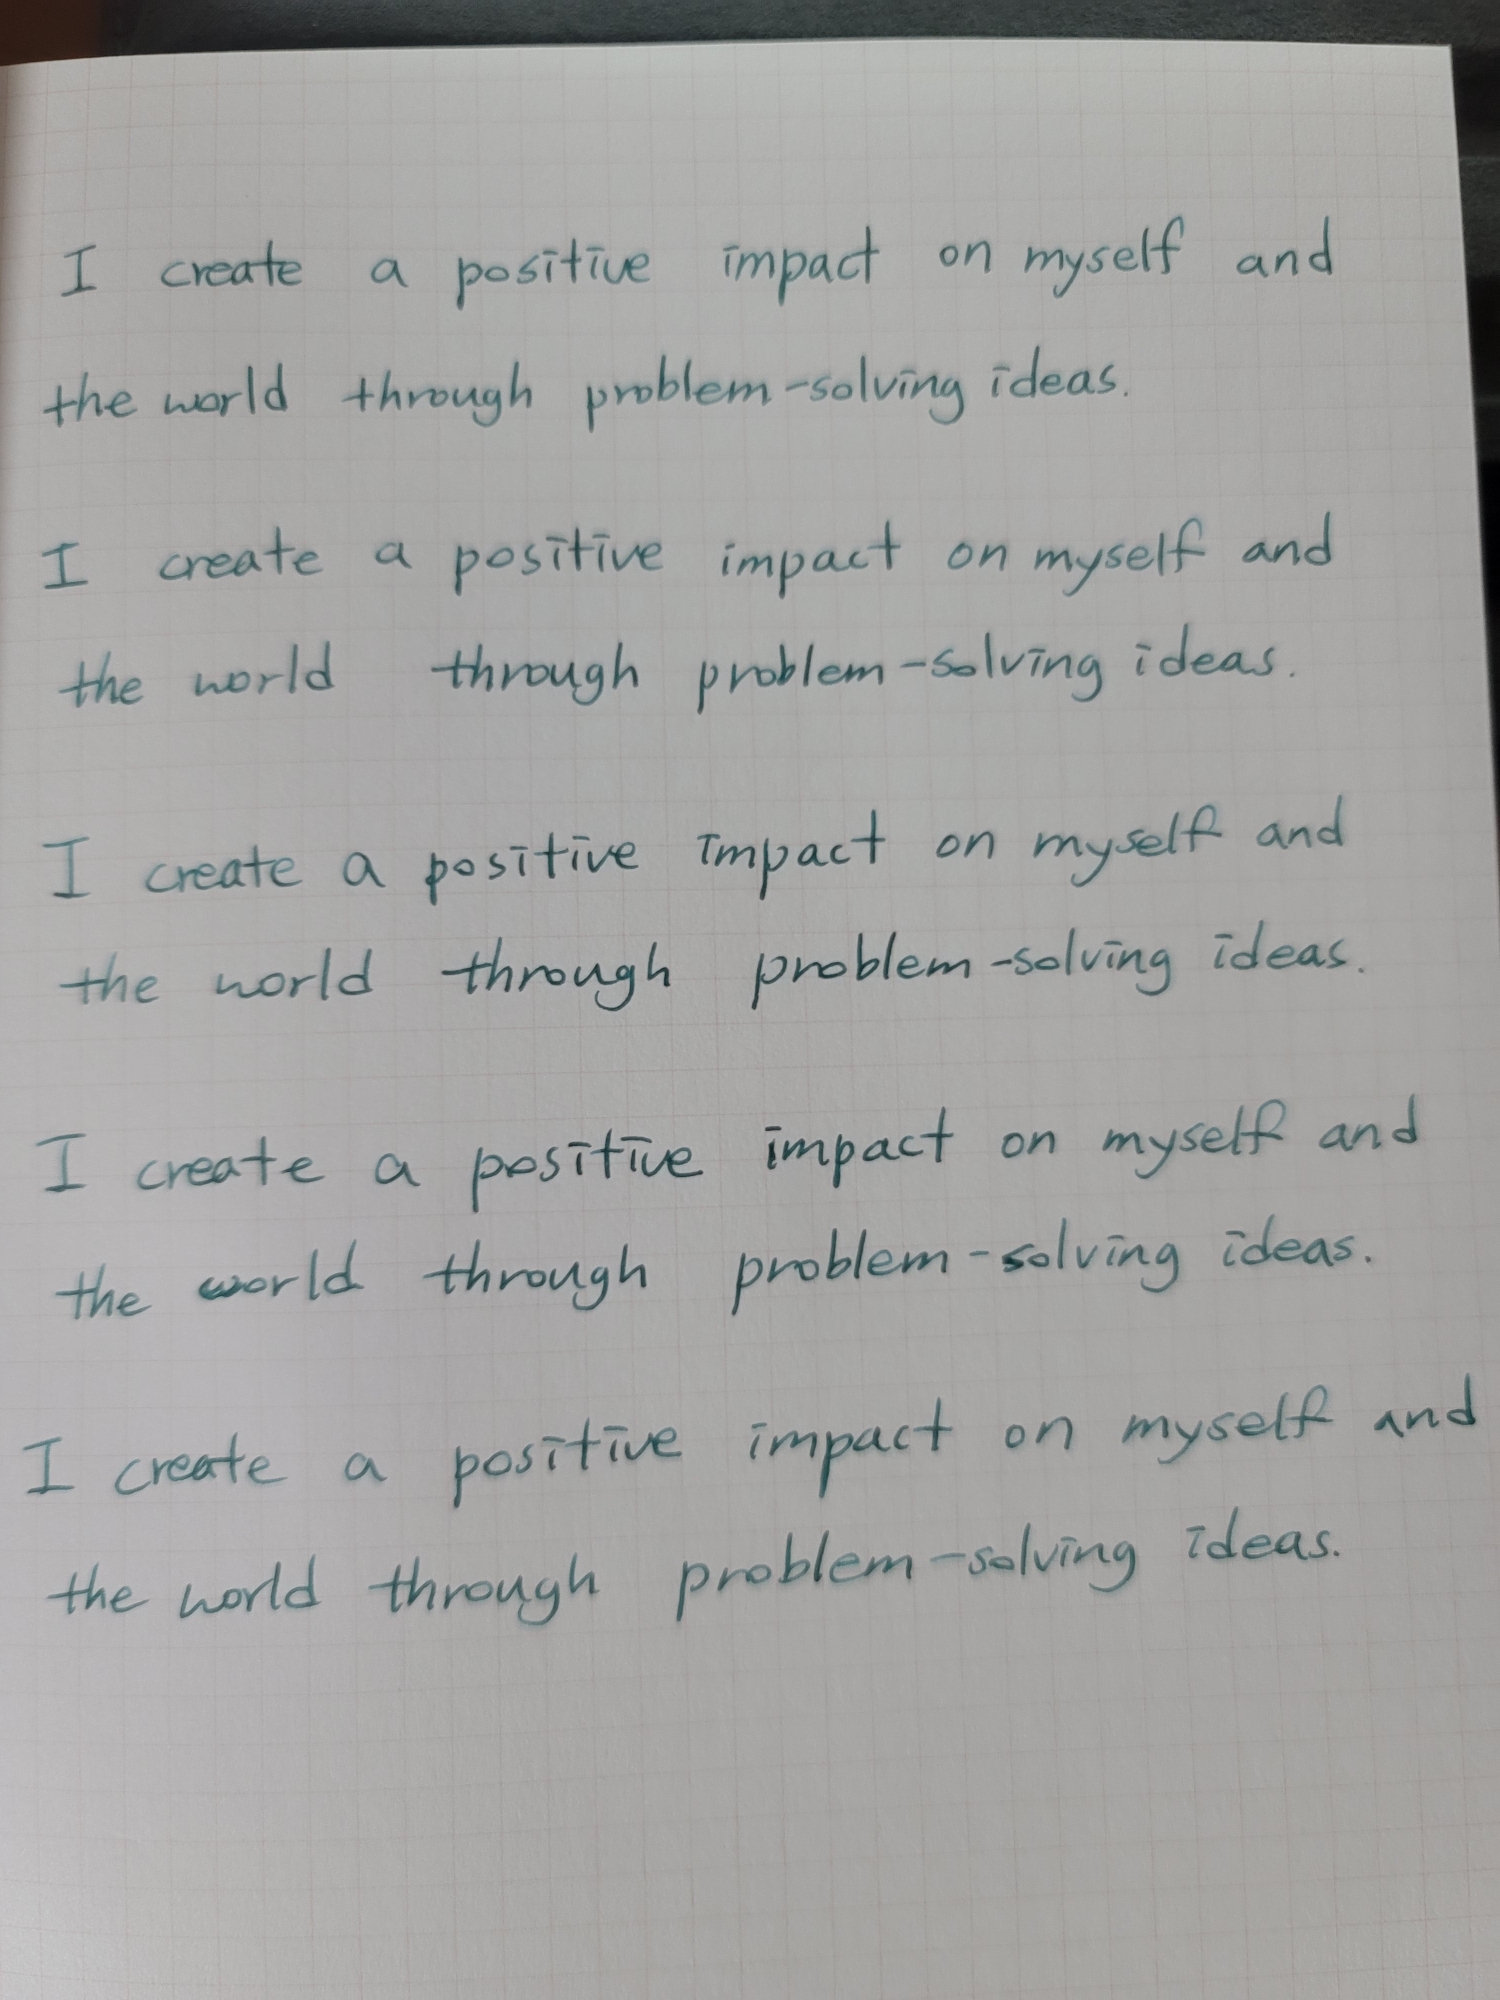 I create a positive impact on myself and
the world through problem-solving ideas.
I create a positive impact on myself and
the world through problem-solving ideas.
I create a positive impact on myself and
the world through problem-solving ideas.
I create a positive impact on myself and
the world through problem-solving ideas.
I create a positive impact on myself and
the world through problem-solving ideas.